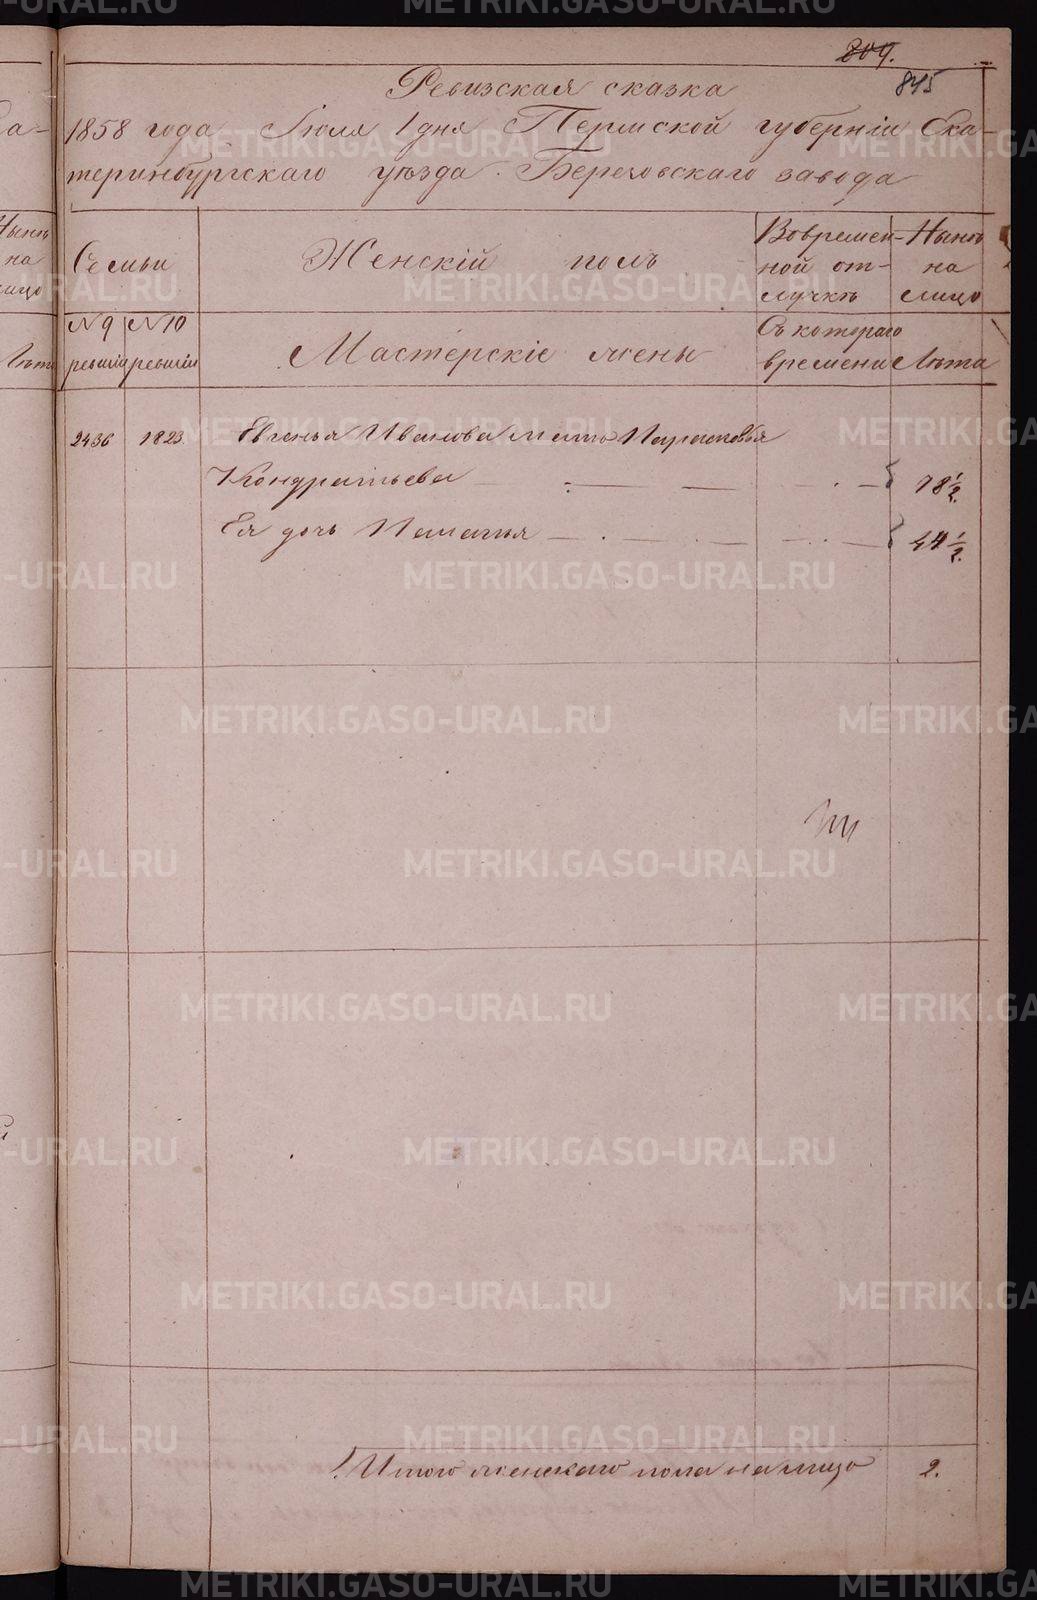 209.
845
Ревизская сказка
1858 года Іюля 1 дня Пермской губерніи Ека-
теринбургскаго уѣзда Березовскаго завода
Семьи
Женскій полъ
Во времен-
ной от-
лучкѣ
Нынѣ
на
лицо
№ 9
ревизіи
№ 10
ревизіи
Мастерскіе жены
Съ котораго
времени
Лѣта
2436 1823. Евгенья Иванова мать Парасковья
Кондратьева 78 1/2.
Ея дочь Наталья 44 1/2.
Итого женскаго пола на лицо 2.
METRIKI.GASO-URAL.RU